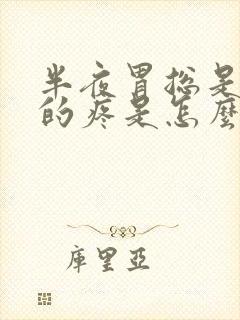 半夜胃总是
的疼是怎麼
庫里亞